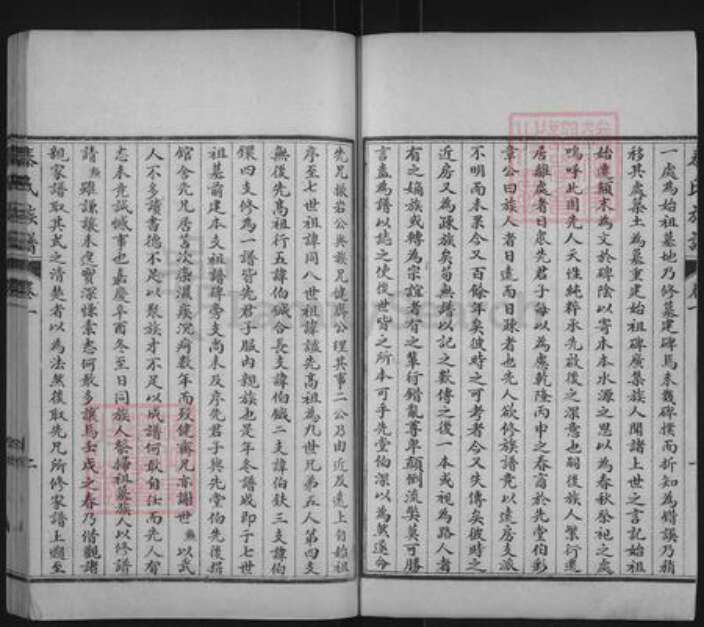 一處為始祖墓地乃修墓建碑焉未幾碑撲而折知為錯誤乃稍
移其處築土為墓重建始祖碑廣集族人開諸上世之言記始祖
始遷顛末為文於碑陰以寄木本水源之思以為春秋祭祀之處
嗚呼此固先人天性純粹承先啟後之深意也嗣後族人繁衍遷
居離處者日眾先君子每以為慮乾隆丙申之春商於先堂伯彰
章公曰族人者日遠而日疎者也先人欲修族譜竟以遠房支派
不明而未果今又百餘年矣彼時之可考者今又失傳矣彼時之
近房又為疎族矣苟無譜以記之數傳之後一本或視為路人者
有之嫡族或轉為宗誼者有之輩行錯亂尊卑顛倒流獘莫可勝
言盍為譜以誌之使後世皆之所本可乎先堂伯深以為然遂命
先兄振岩公與族兄健齋公理其事二公乃由近及遠上自始祖
序至七世祖諱同八世祖諱謐先高祖為九世兄弟五人第四支
無後先高祖行五諱伯鉞合長支諱伯鉞二支諱伯鈇三支諱伯
鏌四支修為一譜皆先君子服內親族也是年冬譜成即于七世
祖墓前建本支祖譜碑旁支尚未及序先君子與先堂伯先後捐
館舍先兄居莒次染濕痰沉痾數年而歿健齋兄亦謝世 以武
人不多讀書德不足以聚族才不足以成譜何敢自任而先人有
志未竟誠憾事也嘉慶辛酉冬至日同族人祭掃祖墓族人以修譜
請 雖謙讓未遑實深懷素志何敢多讓焉壬戌之春乃借觀諸
親家譜取其式之清楚者以為法然後取先兄所修家譜上溯至
族譜
卷一